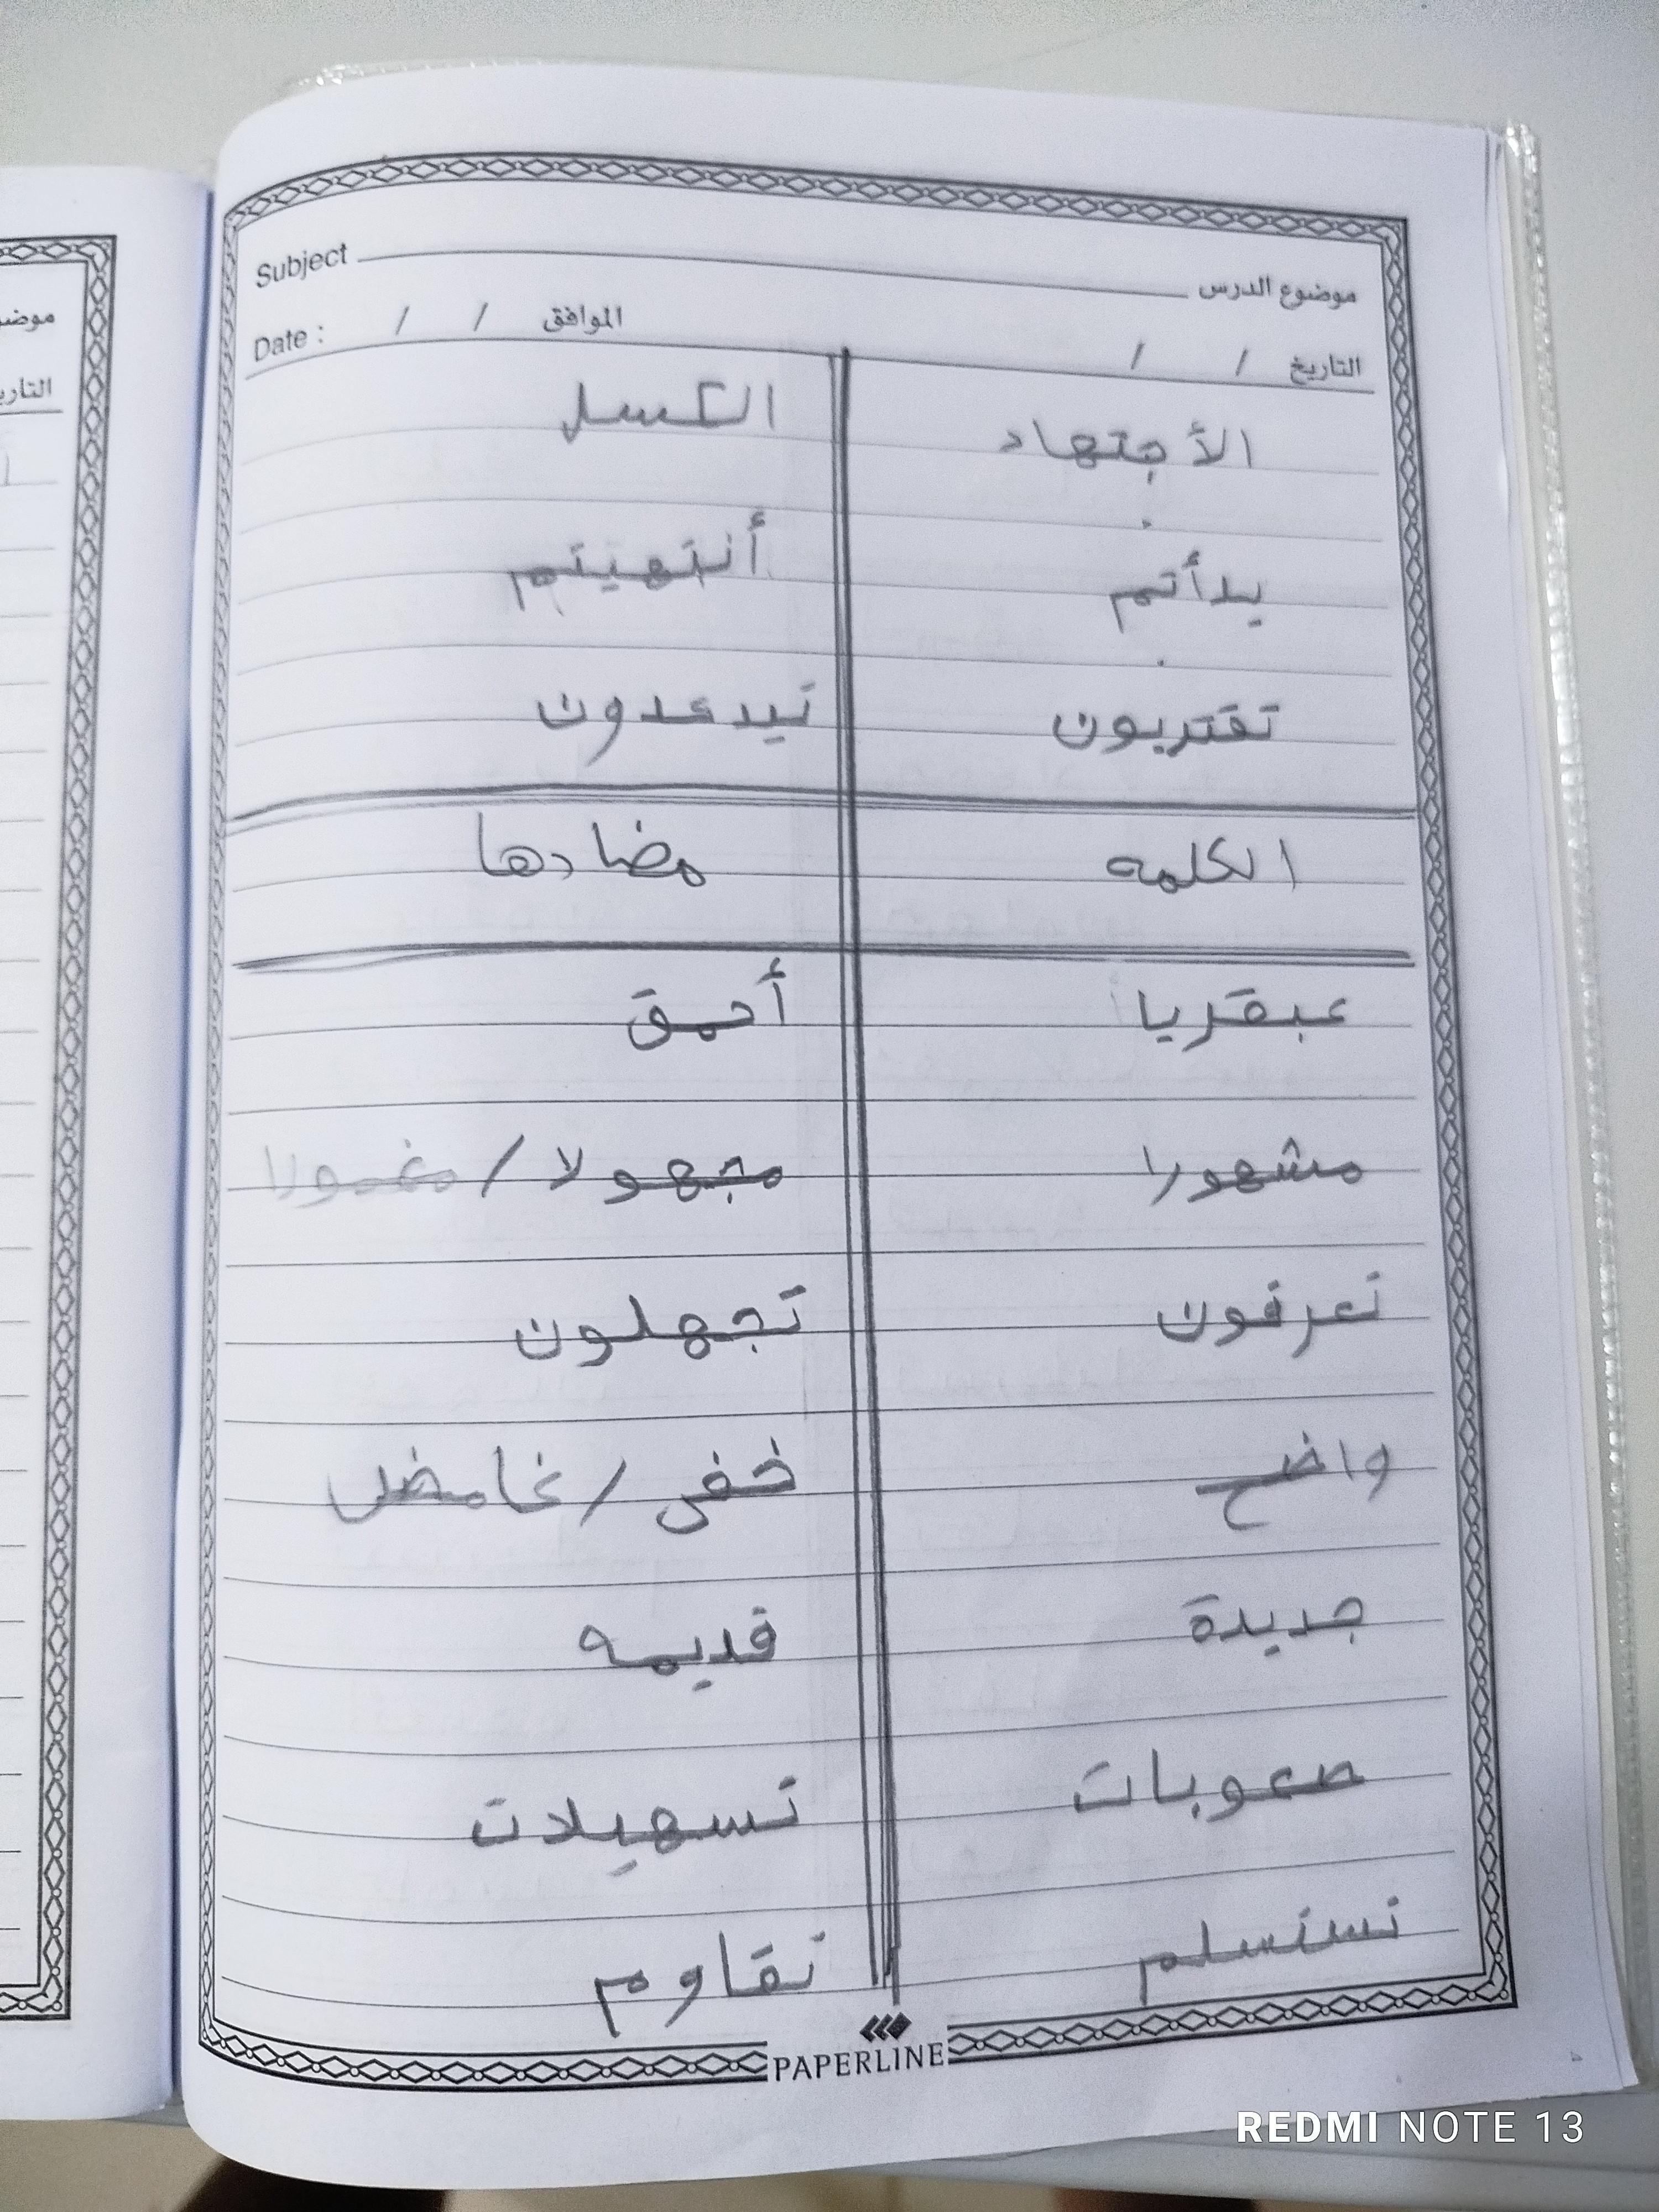 Subject موضوع الدرس
Date : / / الموافق / / التاريخ
الأجتهاد الكسل
يدأتم أنتهيتم
تقتربون تيدعدون
الكلمه مضادها
عبقريا أحمق
مشهورا مجهولا / مغمولا
تعرفون تجهلون
واضح خفى / غامض
جديدة قديمه
صعوبات تسهيلات
تستسلم تقاوم
PAPERLINE
REDMI NOTE 13
موض
التاري